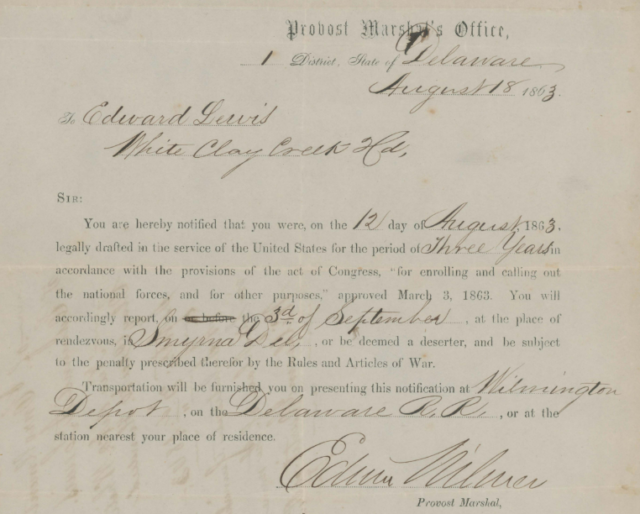 Provost Marshal's Office,
1 District, State of Delaware
August 18 1863.
To Edward Lewis
White Clay Creek Hd.
SIR:
You are hereby notified that you were, on the 12 day of August 1863,
legally drafted in the service of the United States for the period of Three Years in
accordance with the provisions of the act of Congress, "for enrolling and calling out
the national forces, and for other purposes," approved March 3, 1863. You will
accordingly report, on or before the 3d of September, at the place of
rendezvous, in Smyrna Del., or be deemed a deserter, and be subject
to the penalty prescribed therefor by the Rules and Articles of War.
Transportation will be furnished you on presenting this notification at Wilmington
Depot, on the Delaware R. R., or at the
station nearest your place of residence.
Edwin Wilmer
Provost Marshal,